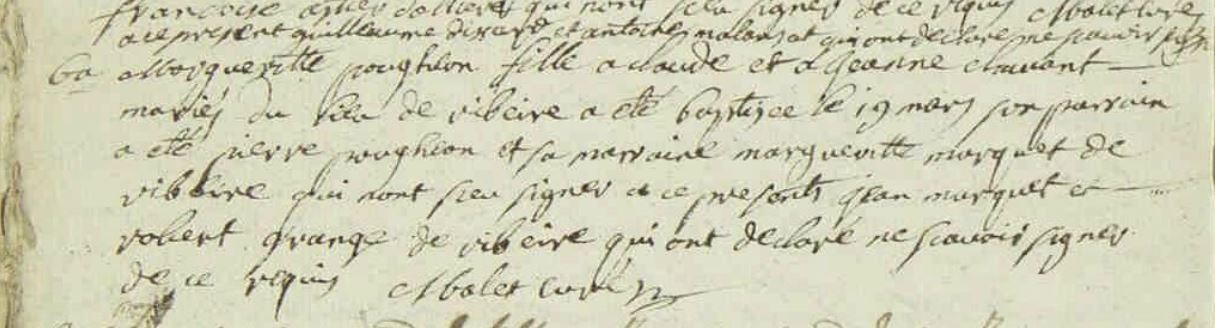 francoise qui n'ont sceu signer de ce requis Mbalet curé
a ce present guillaume et antoine qui ont declaré ne scavoir signer
ba Margueritte poughon fille a claude et a jeanne chauvant
mariés du lieu de ribeire a eté baptisée le 19 mars son parrain
a eté pierre poughon et sa marraine margueritte marquet de
ribeire qui nont sceu signer a ce presents jean marquet et
robert grange de ribeire qui ont declaré ne scavoir signer
de ce requis Mbalet curé